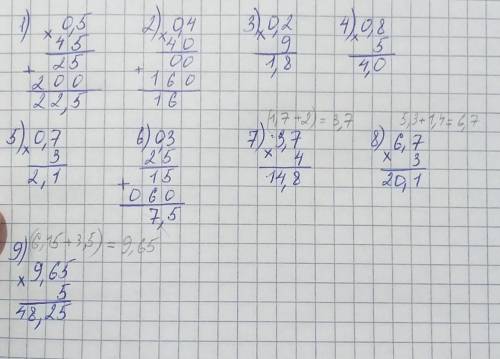 1) × 0,5   2) × 0,4   3) × 0,2   4) × 0,8
45   40   9   5
+ 25   + 00   1,8   4,0
200   160
22,5   16
(1,7+2) = 3,7   5,3+1,4=6,7
5) × 0,7   6) 0,3   7) × 3,7   8) × 6,7
3   25   4   3
2,1   + 15   14,8   20,1
060
7,5
9) (6,15+3,5) = 9,65
× 9,65
5
48,25